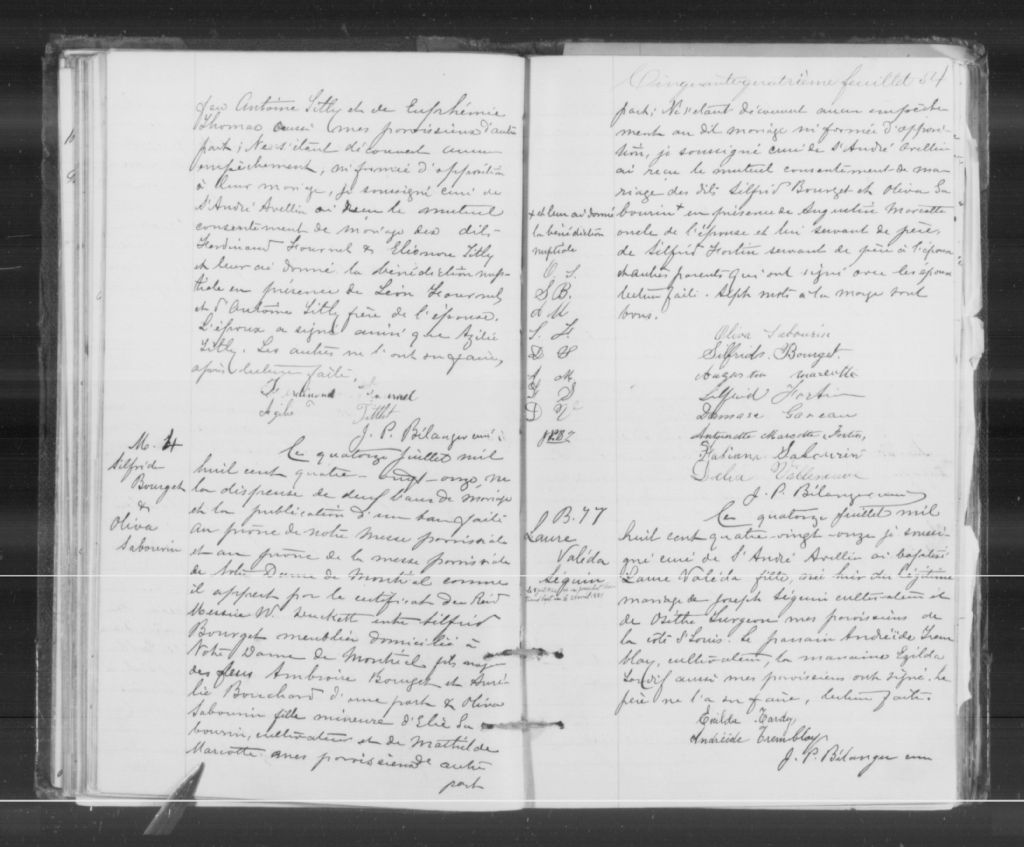 feu Antoine Litly et de Euphémie
Thomas aussi mes paroissiens d'autre
part; Ne s'étant découvert aucun
empêchement, ni formée d'opposition
à leur mariage, je soussigné curé de
St André Avellin ai reçu le mutuel
consentement de mariage des dits
Ferdinand Fournel & Eléonore Litly
et leur ai donné la bénédiction nup-
tiale en présence de Léon Fournel
et d'Antoine Litly frère de l'épouse.
L'époux a signé ainsi que Azilie
Litly. Les autres ne l'ont su faire,
après lecture faite.
Ferdinand Fournel
J. P. Bélanger curé
M. 4
Silfride
Bourget
&
Oliva
Sabourin
Le quatorze Juillet mil
huit cent quatre-vingt-onze, vu
la dispense de deux bans de mariage
et la publication d'un ban faite
au prône de notre Messe paroissiale
et au prône de la messe paroissiale
de Notre Dame de Montréal comme
il appert par le certificat du Revd
Messire W. entre Silfrid
Bourget meublier domicilié à
Notre Dame de Montréal fils maj
des feus Ambroise Bourget et Auré-
lie Bouchard d'une part & Oliva
Sabourin fille mineure d'Elie Sa-
bourin, cultivateur et de Mathilde
Marcotte mes paroissiens d'autre
part
Cinquante quatrième feuillet 54
part; Ne s'étant découvert aucun empêche-
ment au dit mariage ni formée d'opposi-
tion, je soussigné curé de St André Avellin
ai reçu le mutuel consentement de ma-
riage des dits Silfrid Bourget et Oliva Sa-
bourin + en présence de Augustin Marcotte
oncle de l'épouse et lui servant de père,
de Silfrid Fortin servant de père à l'époux
et autres parents qui ont signé avec les époux
lecture faite. Sept mots à la marge sont
bons.
+ et leur ai donné
la bénédiction
nuptiale
O. S.
S B.
A M
S. F.
D G
A M.
F S
D V
Oliva Sabourin
Silfrids Bourget
Augustin Marcotte
Silfrid Fortin
Damase Gareau
Antoinette Marcotte Fortin,
Fabiana Sabourin
Délia Villeneuve
J. P. Bélanger curé
B. 77
Laure
Valéda
Séguin
Le quatorze Juillet mil
huit cent quatre-vingt-onze je soussi-
gné curé de St André Avellin ai baptisé
Laure Valéda fille, née hier du légitime
mariage de Joseph Séguin cultivateur et
de Osithe Turgeon mes paroissiens de
la côte St Louis. Le parrain Andréide Trem
blay, cultivateur, la marraine Exilda
aussi mes paroissiens ont signé. Le
père ne l'a su faire, lecture faite.
Exilda Tardif
Andréide Tremblay
J. P. Bélanger curé